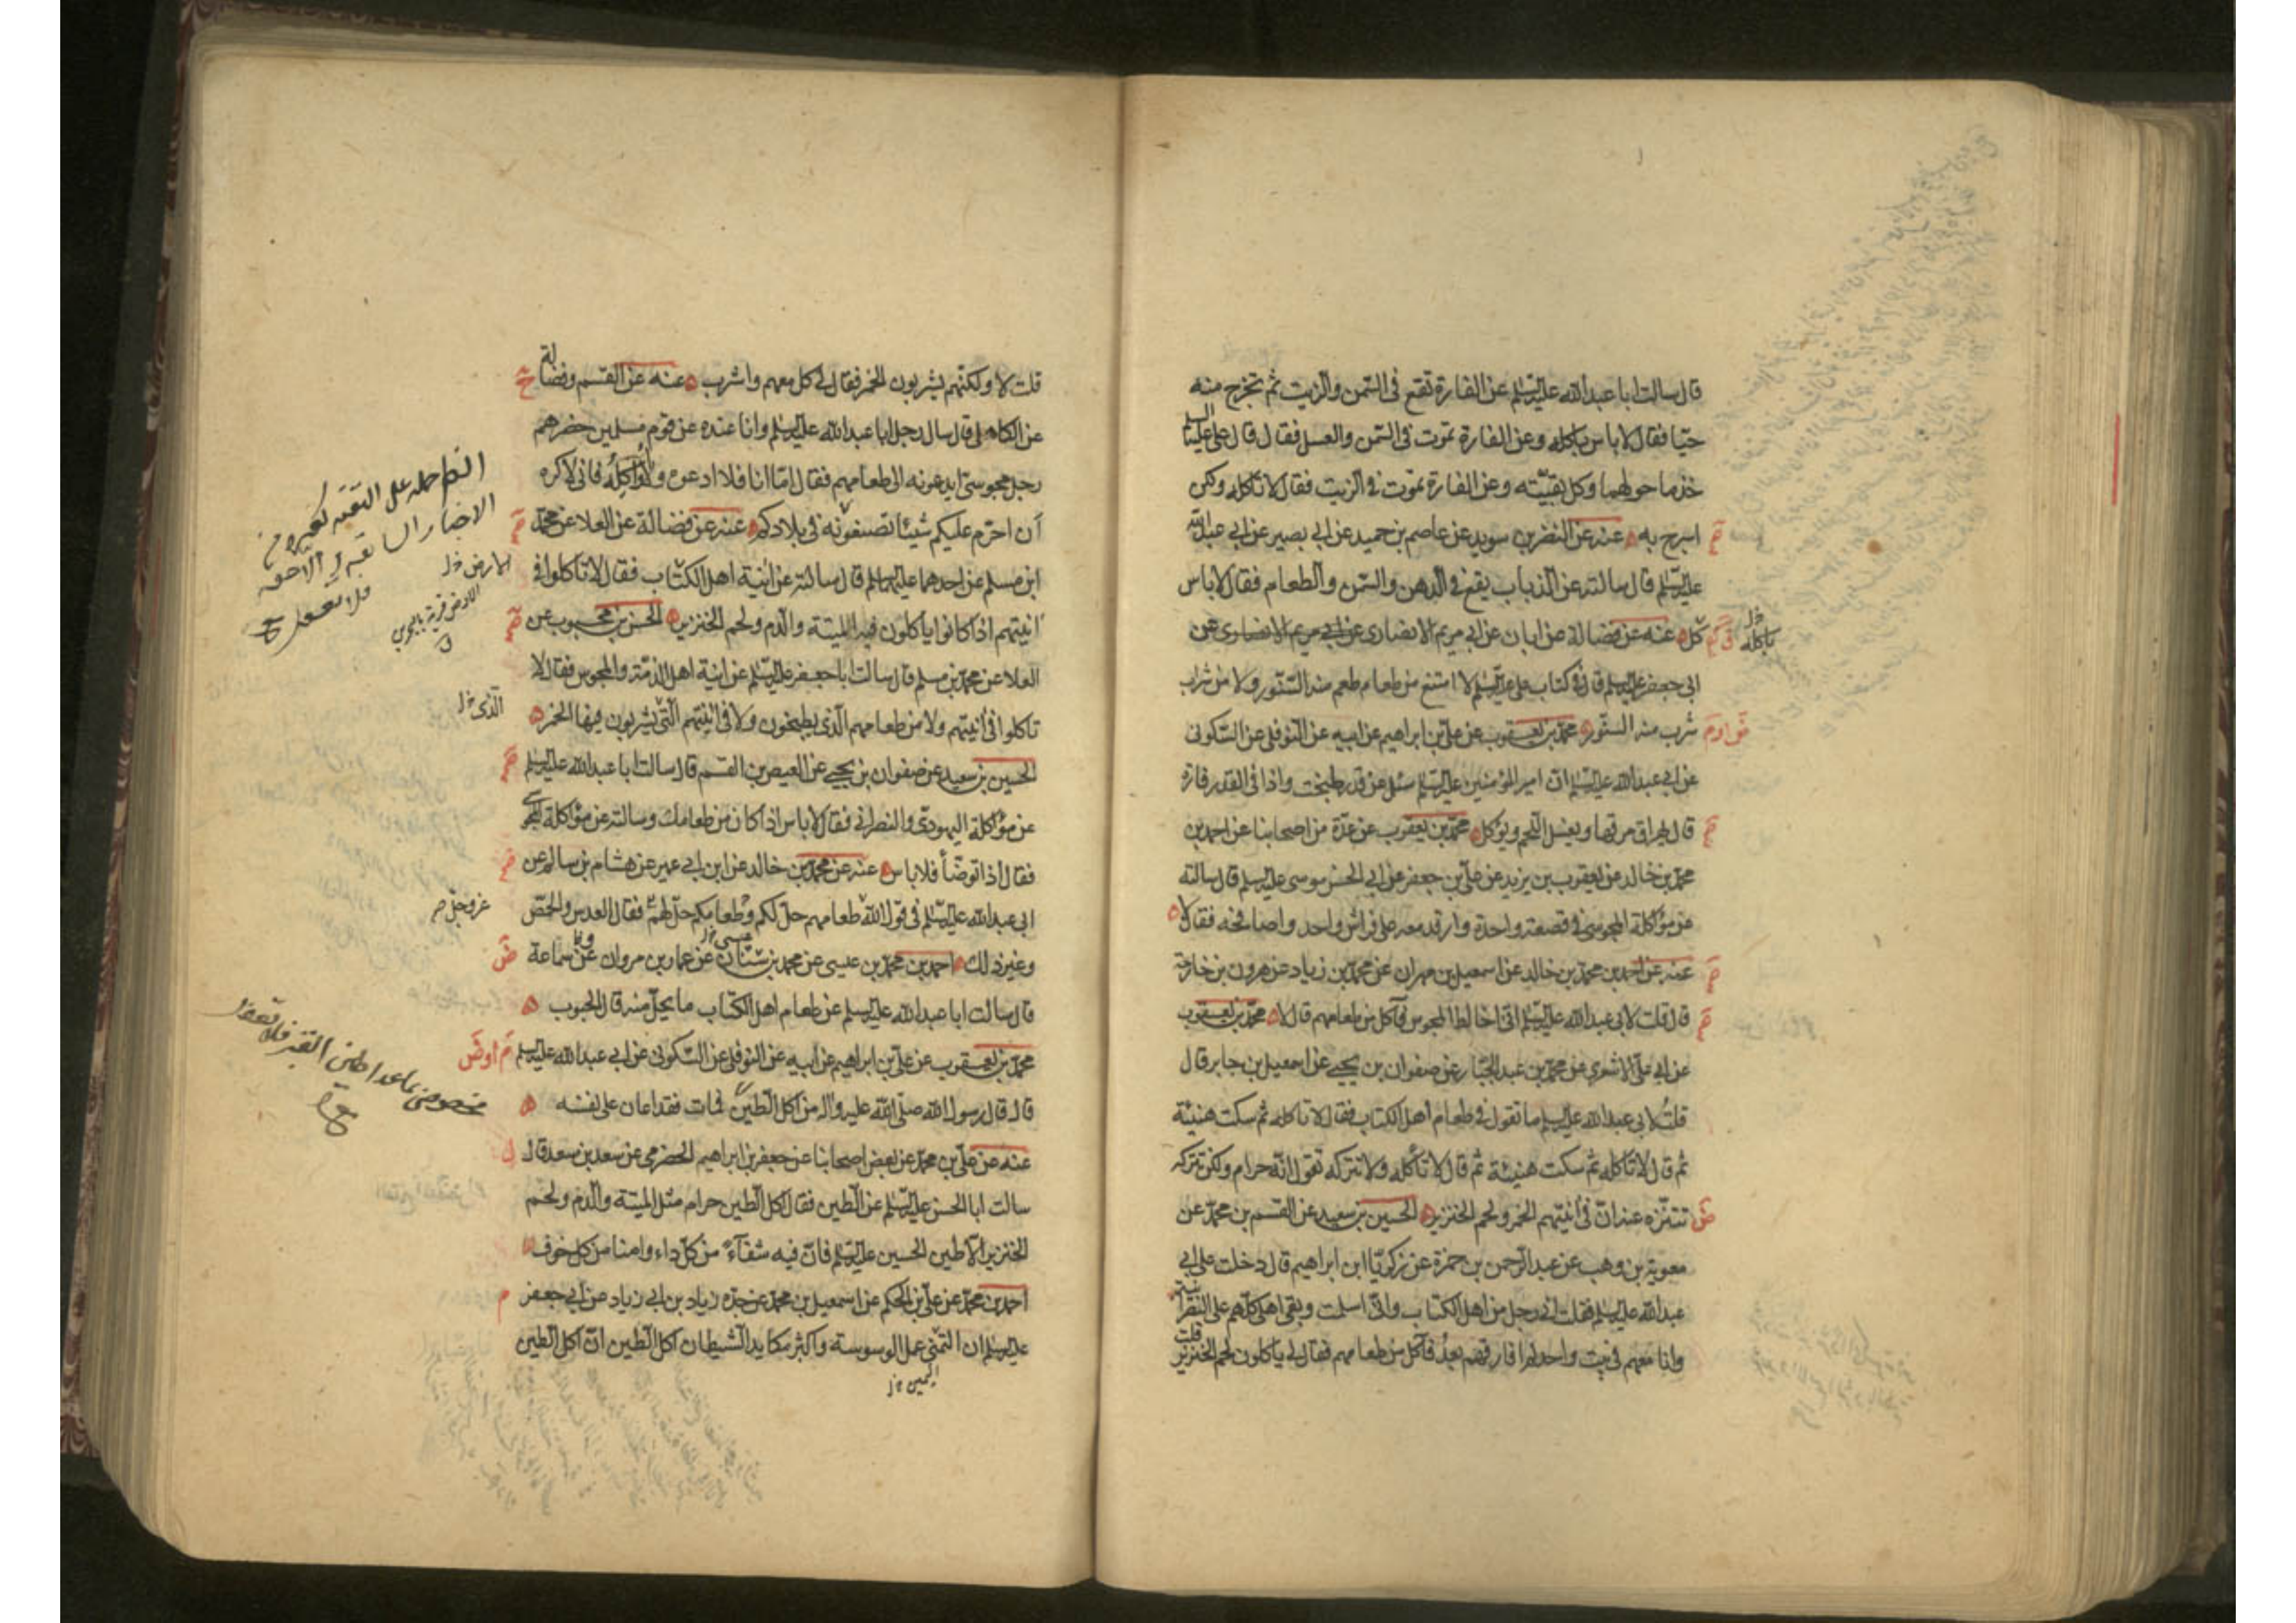 قال سالت ابا عبد الله عليه السلم عن الفارة تقع فى السمن والزيت ثم تخرج منه
حيا فقال لا باس باكله وعن الفارة تموت فى السمن والعسل فقال قال على عليه السلم
خذ ما حولهما وكل بقيته وعن الفارة تموت فى الزيت فقال لا تاكله ولكن
اسرج به عنه عن النضر بن سويد عن عاصم بن حميد عن ابى بصير عن ابى عبد الله
عليه السلم قال سالته عن الذباب يقع فى الدهن والسمن والطعام فقال لا باس
كل عنه عن فضالة عن ابان عن ابى مريم الانصارى عن ابى مريم الانصارى عن
باكله خ ل
ابى جعفر عليه السلم قال فى كتاب على عليه السلم لا امتنع من طعام طعم منه السنور ولا من شراب
شرب منه السنور محمد بن يعقوب عن على بن ابراهيم عن ابيه عن النوفلى عن السكونى
عن ابى عبد الله عليه السلم ان امير المؤمنين عليه السلم سئل عن قدر طبخت واذا فى القدر فارة
قال يهراق مرقها ويغسل اللحم ويؤكل محمد بن يعقوب عن عدة من اصحابنا عن احمد بن
محمد بن خالد عن يعقوب بن يزيد عن على بن جعفر عن ابى الحسن موسى عليه السلم قال سالته
عن مؤاكلة المجوسى فى قصعة واحدة وارقد معه على فراش واحد واصافحه فقال لا
عنه عن احمد بن محمد بن خالد عن اسمعيل بن مهران عن محمد بن زياد عن هرون بن خارجة
قال قلت لابى عبد الله عليه السلم انى اخالط المجوس فآكل من طعامهم قال لا محمد بن يعقوب
عن ابى على الاشعرى عن محمد بن عبد الجبار عن صفوان بن يحيى عن اسمعيل بن جابر قال
قلت لابى عبد الله عليه السلم ما تقول فى طعام اهل الكتاب فقال لا تاكله ثم سكت هنيئة
ثم قال لا تاكله ثم سكت هنيئة ثم قال لا تأكله ولا تتركه تقول انه حرام ولكن تتركه
تتنزه عنه ان فى آنيتهم الخمر ولحم الخنزير الحسين بن سعيد عن القسم بن محمد عن
معوية بن وهب عن عبد الرحمن بن حمزة عن زكريا ابن ابراهيم قال دخلت على ابى
عبد الله عليه السلم فقلت انى رجل من اهل الكتاب وانى اسلمت وبقى اهلى كلهم على النصرانية
وانا معهم فى بيت واحد لم افارقهم بعد فآكل من طعامهم فقال لى ياكلون لحم الخنزير قلت
قلت لا ولكنهم يشربون الخمر فقال لى كل معهم واشرب عنه عن القسم وفضالة
عن الكاهلى قال سال رجل ابا عبد الله عليه السلم وانا عنده عن قوم مسلمين حضرهم
رجل مجوسى ايدعونه الى طعامهم فقال اما انا فلا ادعوه ولا اواكله فانى لاكره
أن احرم عليكم شيئا تصنعونه فى بلادكم عنه عن فضالة عن العلا عن محمد
ابن مسلم عن احدهما عليهما السلم قال سالته عن آنية اهل الكتاب فقال لا تاكلوا فى
آنيتهم اذا كانوا ياكلون فيه الميتة والدم ولحم الخنزير الحسن بن محبوب عن
العلا عن محمد بن مسلم قال سالت ابا جعفر عليه السلم عن آنية اهل الذمة والمجوس فقال لا
تاكلوا فى آنيتهم ولا من طعامهم الذى يطبخون ولا فى آنيتهم التى يشربون فيها الخمر
الذى خ ل
الحسين بن سعيد عن صفوان بن يحيى عن العيص بن القسم قال سالت ابا عبد الله عليه السلم
عن مؤاكلة اليهودى والنصرانى فقال لا باس اذا كان من طعامك وسالته عن مؤاكلة المجوسى
فقال اذا توضأ فلا باس عنه عن محمد بن خالد عن ابن ابى عمير عن هشام بن سالم عن
ابى عبد الله عليه السلم فى قول الله طعامهم حل لكم وطعامكم حل لهم فقال العدس والحمص
عز وجل صح
وغير ذلك احمد بن محمد بن عيسى عن محمد بن سنان عن عمار بن مروان عن سماعة
قال سالت ابا عبد الله عليه السلم عن طعام اهل الكتاب ما يحل منه قال الحبوب
محمد بن يعقوب عن على بن ابراهيم عن ابيه عن النوفلى عن السكونى عن ابى عبد الله عليه السلم
قال قال رسول الله صلى الله عليه واله من اكل الطين فمات فقد اعان على نفسه
عنه عن على بن محمد عن بعض اصحابنا عن جعفر بن ابراهيم الحضرمى عن سعد بن سعد قال
سالت ابا الحسن عليه السلم عن الطين فقال اكل الطين حرام مثل الميتة والدم ولحم
الخنزير الا طين الحسين عليه السلم فان فيه شفآء من كل داء وامنا من كل خوف
احمد بن محمد عن على بن الحكم عن اسمعيل بن محمد عن جده زياد بن ابى زياد عن ابى جعفر
عليه السلم ان التمنى عمل الوسوسة واكثر مكايد الشيطان اكل الطين ان اكل الطين